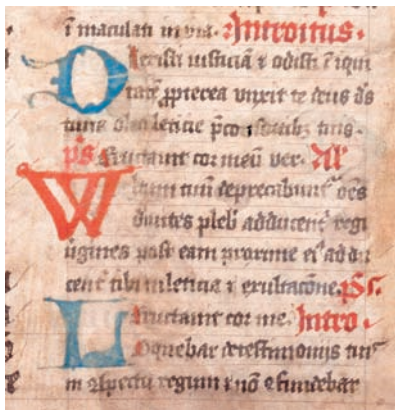 ī maculati in via. Introitus.
Dilexisti iusticiā ⁊ odisti īiqui
tatē ꝓpterea vnxit te deus ds̄
tuus oleo leticie p̄ cōsortibꝫ tuis.
ps Eructauit cor meū ver. Al
Wltum tuū deprecabunt᷑ oēs
diuites plebˀ adducent᷑ regi
uirgines post eam proxime eiꝰ addu
cent᷑ tibi in leticia ⁊ exultacōne. ps.
Eructauit cor me. Intro.
Loquebar de testimonijs tuis
in ꝯspectu regum ⁊ nō ꝯfundebar